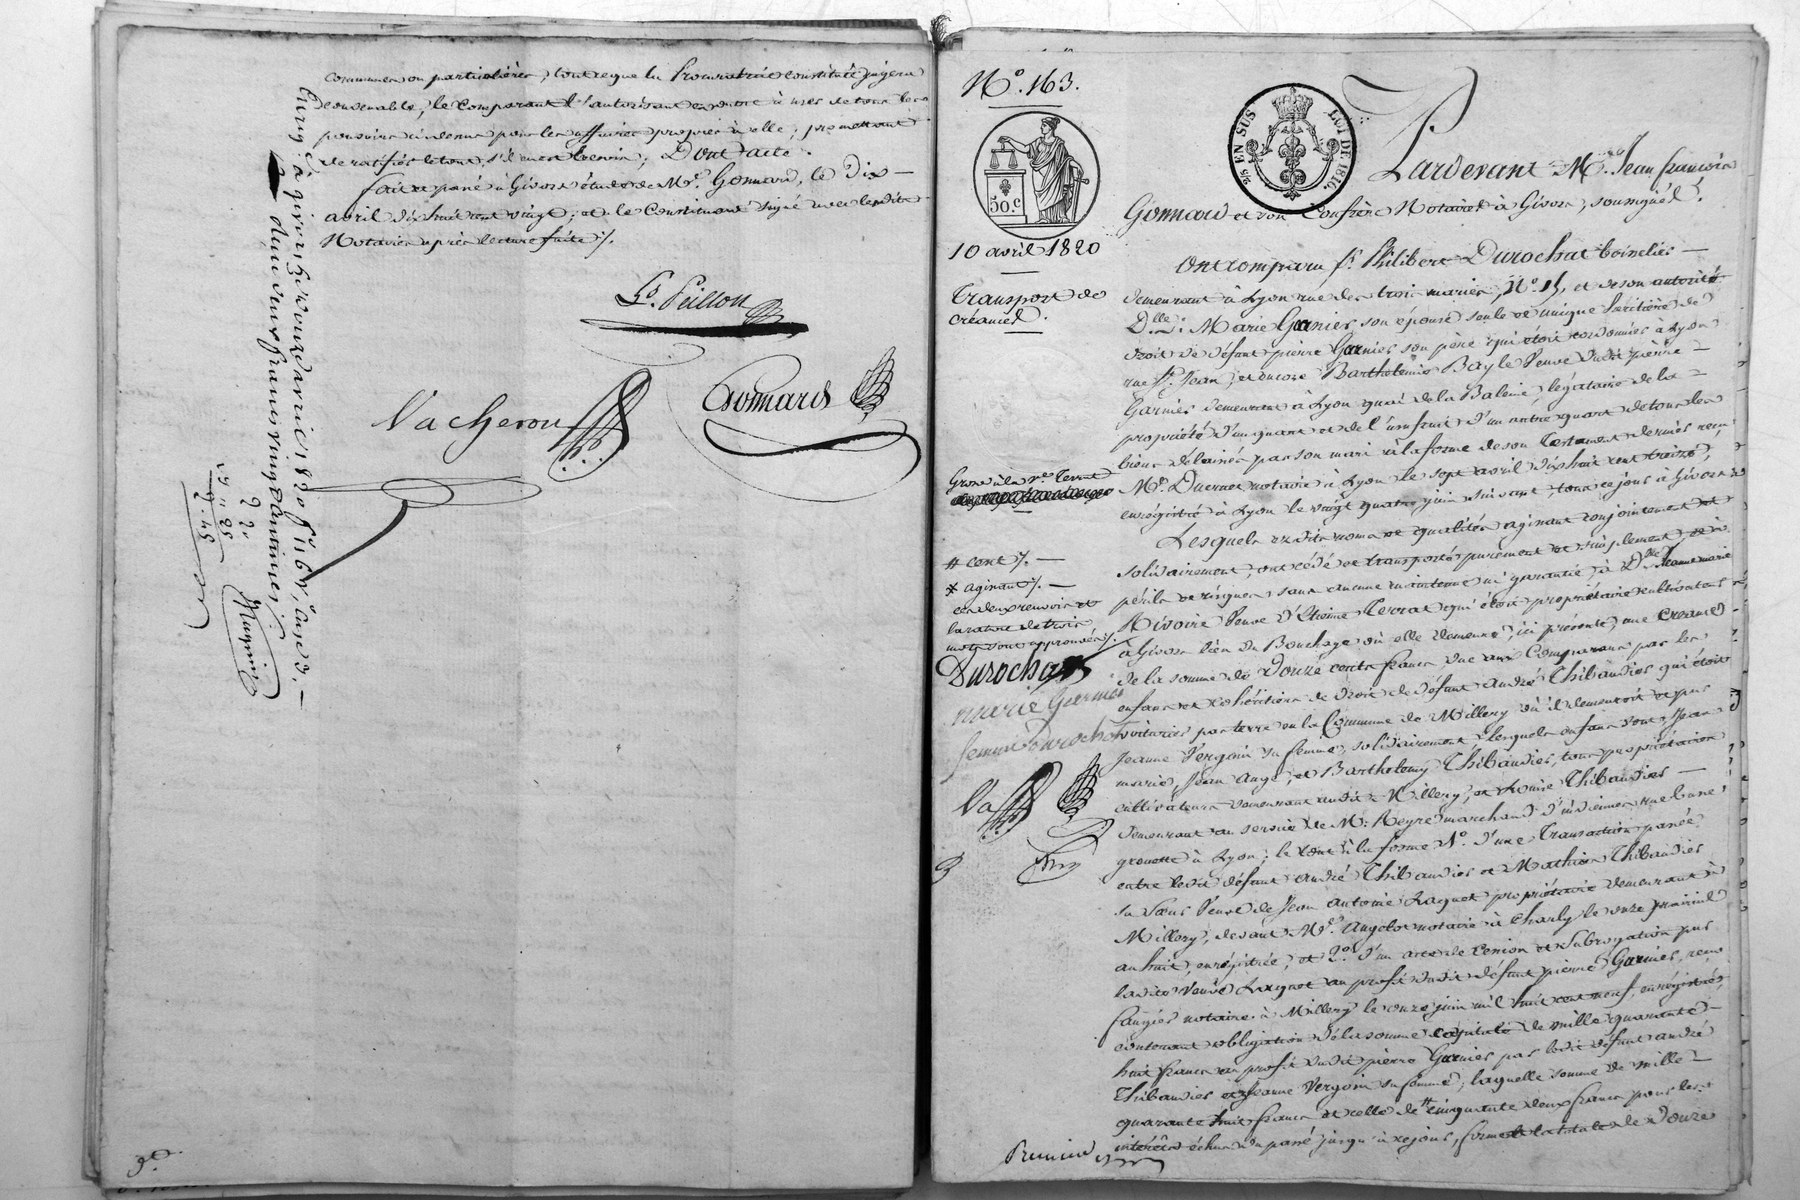 communes ou particulières, tout ce que la Procuratrice constituée jugera
convenable, le Comparant l'autorisant en outre à user de tous les
pouvoirs ci dessus pour les affaires propres à elle, promettant
de ratifier le tout, s'il en est besoin, Dont acte.
fait et passé à Givors étude de Me. Gonnard, le Dix
avril dix huit cent vingt, et le Constituant signé avec lesdits
Notaires après lecture faite ./.
Peillon
Vacheron
Gonnard
Enreg. à givors le douze avril 1820 fo. 116
Reçu deux francs vingt centimes
No. 163.
EN SUS
LOI DE 1816.
50.c
10 avril 1820
Transport de
créance.
Pardevant Me. Jean françois
Gonnard et son Confrère Notaires à Givors, soussignés.
Ont comparu sr. Philibert Durochat
demeurant à Lyon rue des trois maries, No. 15, et de son autorité
Dlle. Marie Garnier son épouse seule et unique héritière de
droit de défunt pierre Garnier son père qui étoit cordonnier à Lyon
rue St. Jean, et encore Barthelemie Bayle Veuve dudit pierre
Garnier demeurant à Lyon quai de la Baleine, légataire de la
propriété d'un quart et de l'usufruit d'un autre quart de tous les
biens délaissés par son mari à la forme de son Testament dernier reçu
Me. Duernet notaire à Lyon le sept avril dix huit cent treize,
enregistré à Lyon le vingt quatre juin suivant, tous ce jour à Givors
Lesquels esdits noms et qualités agissant conjointement et
solidairement, ont cédé et transporté purement et simplement,
périls et risques sans aucune maintenue ni garantie, à Dlle. Jeanne marie
Rivoire Veuve d'Etienne Terrat qui étoit propriétaire cultivateur
à Givors lieu du Bouchage où elle demeure, ici présente, une créance
de la somme de Douze cents francs due aux Comparans par les
enfans et cohéritiers de droit de défunt André Thibaudier qui étoit
voiturier par terre en la Commune de Millery où il demeuroit et par
Jeanne Vergoin sa femme, solidairement, lesquels enfans sont, Jean
marie, Jean Ange, et Barthelemy Thibaudier, tous propriétaires
cultivateurs demeurant audit Millery, et Louise Thibaudier
demeurant au service de Mr. Reyre marchand d'indiennes rue basse
grenette à Lyon; le tout à la forme 1o. d'une Transaction passée
entre ledit défunt André Thibaudier et Mathieu Thibaudier
sa soeur Veuve de Jean antoine Laquet propriétaire demeurant à
Millery, devant Me. Angelot notaire à Charly le onze prairial
an huit, enregistrée, et 2o. d'un acte de Cession et Subrogation par
ladite veuve Laquet au profit dudit défunt pierre Garnier, reçu
notaire à Millery le onze juin mil huit cent neuf, enregistré,
contenant obligation de la somme capitale de mille quarante
huit francs au profit dudit pierre Garnier par ledit défunt andré
Thibaudier et Jeanne Vergoin sa femme; laquelle somme de mille
quarante huit francs et celle de # cinquante deux francs pour les
intérêts échus du passé jusqu'à ce jour, forment la totale de Douze
Grosse à la Ve. Terrat
# cent ./.
* agissant ./.
ces deux renvois et
la rature de trois
mots sont approuvés ./.
Durochat
marie Garnier
femme Durochat
Va
Premier